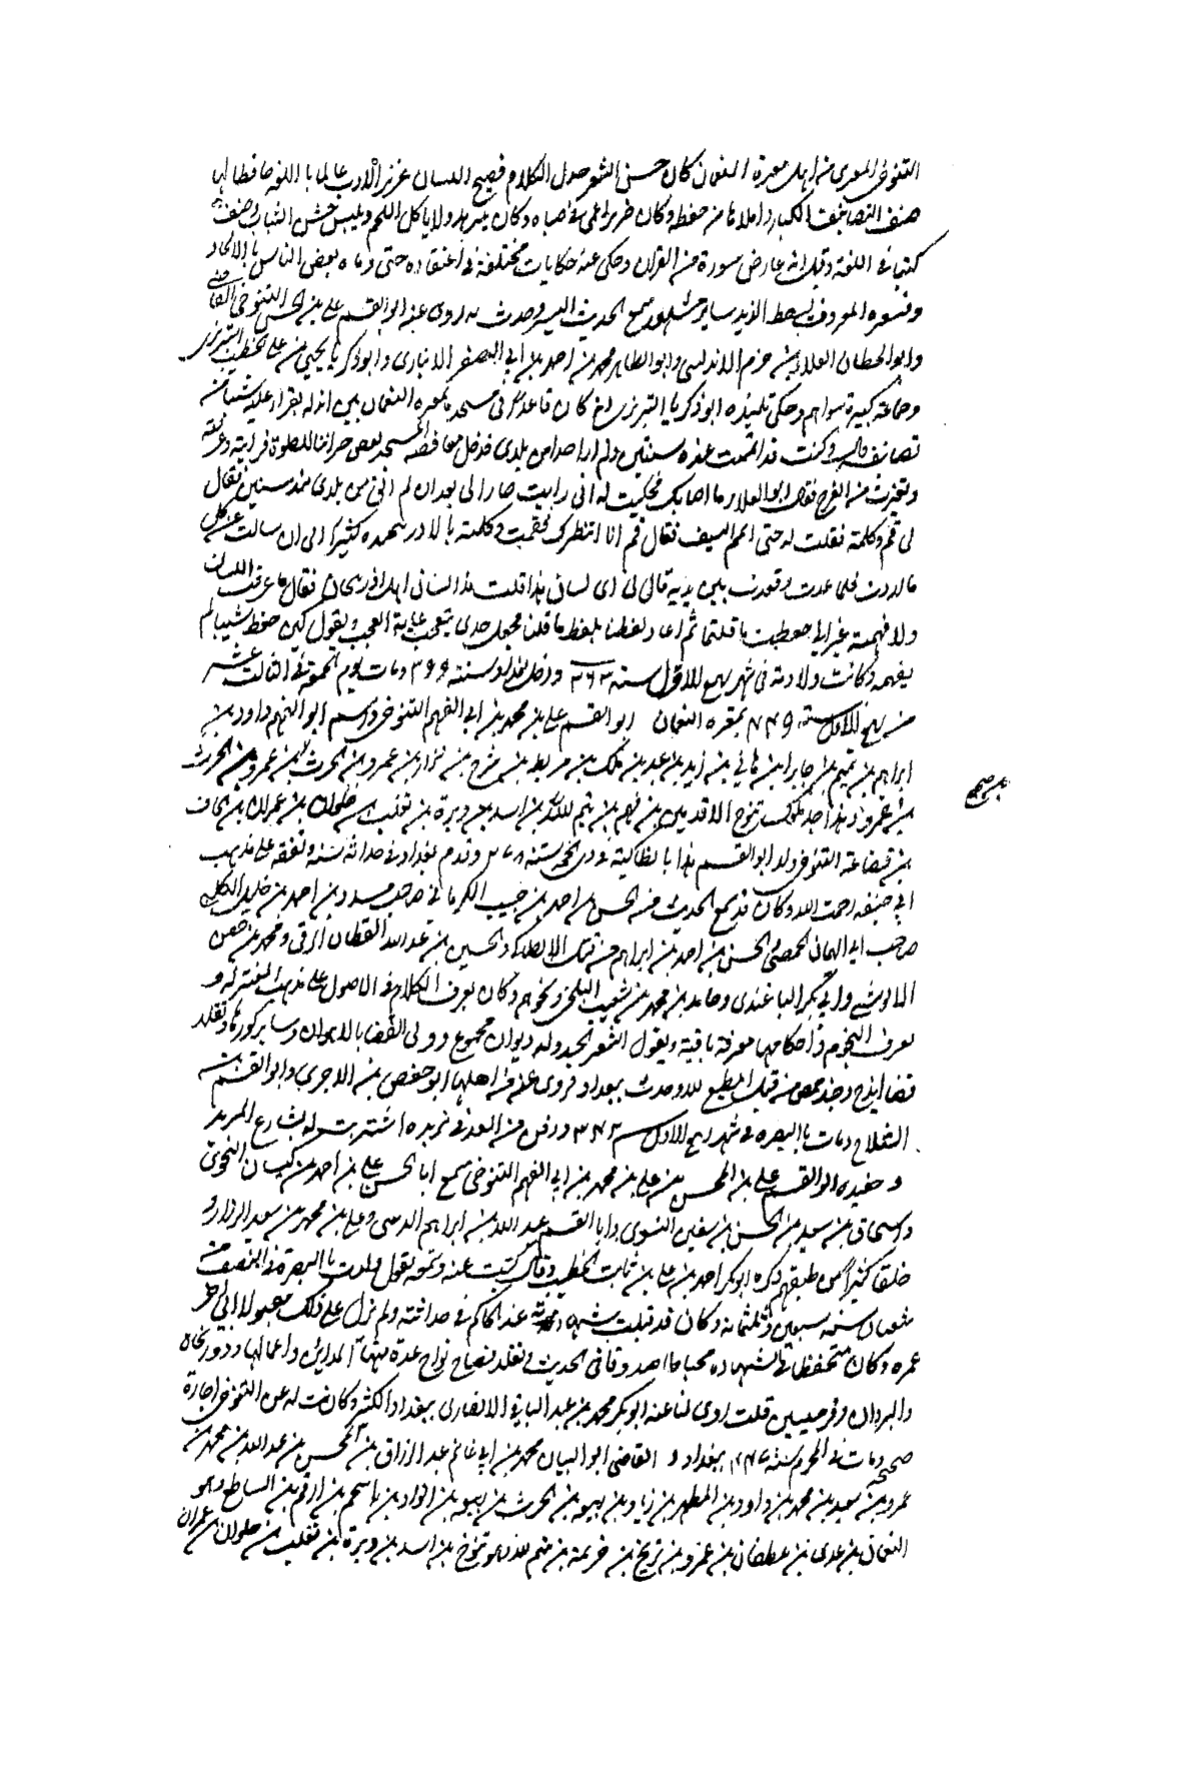 التنوخي المعري من اهل معرة النعمان كان حسن الشعر جزل الكلام فصيح اللسان غزير الادب عالما با اللغة حافظا لها
صنف التصانيف الكبار واملاها من حفظه وكان ضريرا عمي في صباه وكان يتزهد ولا ياكل اللحم ويلبس خشن الثياب وصنف
كتبا في اللغة وقيل انه عارض سورة من القران وحكى عنه حكايات مختلفة في اعتقاده حتى رماه بعض الناس با الالحاد
وشعره المعروف بسقط الزند ساير مشهور سمع الحديث اليسير وحدث به روى عنه ابو القسم علي بن المحسن التنوخي القاضي
وابو الخطاب العلاء بن حزم الاندلسي وابو الطاهر محمد بن احمد بن ابي الصقر الانباري وابو ذكريا يحيى بن علي الخطيب التبريزي
وجماعة كبيرة سواهم وحكى تلميذه ابو ذكريا التبريزي انه كان قاعدا في مسجده بمعرة النعمان بين يديه يقرا عليه شيئا من
تصانيفه قال وكنت قد اتممت عنده سنتين ولم ار احدا من بلدي فدخل مغافصة المسجد بعض جيراننا للصلوة فرايته وعرفته
وتغيرت من الفرح فقال ابو العلا ما اصابك فحكيت له اني رايت جارا لي بعد ان لم الق من بلدي منذ سنين فقال
لي قم وكلمه فقلت له حتى اتمم السبق فقال قم انا انتظرك فقمت وكلمته با الاذربيجية كثيرا الى ان سالت عن كل
ما اردت فلما عدت وقعدت بين يديه قال لي اي لسان هذا قلت هذا لسان اهل اذربيجان فقال ما عرفت اللسان
ولا فهمته غير اني حفظت ما قلتما ثم اعاد لفظنا بلفظ ما قلنا فجعل جاري يتعجب غاية العجب ويقول كيف حفظ شيا لم
يفهمه وكانت ولادته في شهر ربيع الاول سنة ٣٦٣ ودخل بغداد سنة ٣٩٩ ومات يوم الجمعة في الثالث عشر
من ربيع الاول سنة ٤٤٩ بمعرة النعمان ابو القسم علي بن محمد بن ابي الفهم التنوخي واسم ابو الفهم داود بن
ابراهيم بن تميم بن جابر بن هاني بن زيد بن عبيد بن ملك بن مريط بن شرح بن نزار بن عمرو بن الحرث بن عمرو بن الحرث
بن عمرو وهذا احد ملوك تنوخ الاقدمين بن فهم بن تيم الله بن اسد بن وبرة بن تغلب بن حلوان بن عمران بن الحاف
بن قضاعة التنوخي ولد ابو القسم هذا بانطاكية في ذي الحجة سنة ٢٧٨ وقدم بغداد في حداثة سنه وتفقه على مذهب
ابي حنيفة رحمت الله وكان قد سمع الحديث من الحسن بن احمد بن حبيب الكرماني صاحب مسدد بن احمد بن خليد الحلبي
صاحب ابي اليمان الحمصي والحسن بن احمد بن ابراهيم بن الانطاكي والحسين بن عبد الله القطان الرقي ومحمد بن حصن
الالوسي وابي بكر الباغندي وحامد بن محمد بن شعيب البلخي ونحوهم وكان يعرف الكلام في الاصول على مذهب المعتزلة و
يعرف النجوم واحكامها معرفة ثاقبة ويقول الشعر الجيد وله ديوان مجموع وولي القضا بالاهواز وساير كورها وتقلد
قضا ايذج وجند حمص من قبل المطيع لله وحدث ببغداد فروى عنه من اهلها ابو حفص بن الاجري وابو القسم بن
الثلاج ومات با البصرة في شهر ربيع الاول سنة ٣٤٢ ودفن من الغد في تربة اشتريت له بشارع المربد
وحفيده ابو القسم علي بن المحسن بن علي بن محمد بن ابي الفهم التنوخي سمع ابا الحسن علي بن احمد بن كيسان النحوي
واسحاق بن سعيد بن الحسن بن سفين النسوي وابا القسم عبد الله بن ابراهيم الزبيبي وعلي بن محمد بن سعيد الرزاز و
خلقا كثيرا من طبقتهم ذكره ابو بكر احمد بن علي بن ثابت الخطيب وقال كتبت عنه وسمعته يقول ولدت با البصرة في النصف من
شعبان سنة سبعين وثلثمائة وكان قد قبلت شهادته عند الحكام في حداثته ولم يزل على ذلك مقبولا الى اخر
عمره وكان متحفظا في الشهادة محتاطا صدوقا في الحديث تقلد قضاء نواح عدة منها المدائن واعمالها ودورنجان
والبردان وقرميسين قلت روى لنا عنه ابو بكر محمد بن عبد الباقي الانصاري ببغداد الكثير وكانت له عن التنوخي اجازة
صحيحة ومات في المحرم سنة ٤٤٧ ببغداد و القاضي ابو البيان محمد بن ابي غانم عبد الرزاق بن المحسن بن عبد الله بن محمد بن
عمرو بن سعيد بن محمد بن داود بن المطهر بن زياد بن ربيعة بن الحرث بن ربيعة بن انور بن اسحم بن ارقم بن الساطع وهو
النعمان بن عدي بن غطفان بن عمرو بن بريح بن خزيمة بن تيم الله وهو تنوخ بن اسد بن وبرة بن تغلب بن حلوان بن عمران